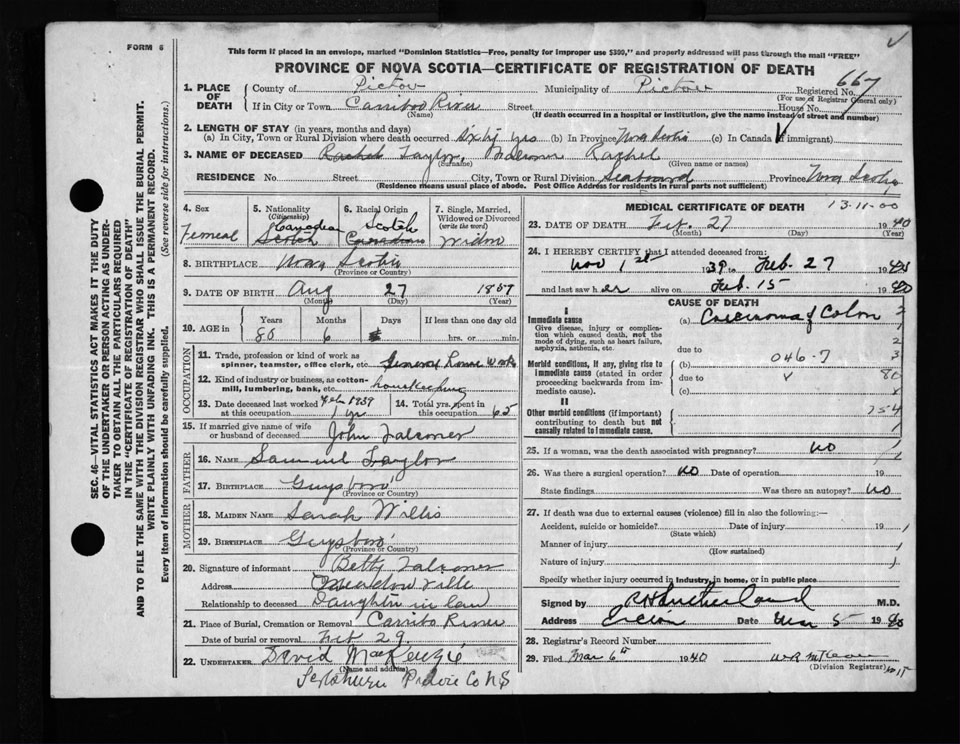 FORM 6
This form if placed in an envelope, marked "Dominion Statistics—Free, penalty for improper use $300," and properly addressed will pass through the mail "FREE"
PROVINCE OF NOVA SCOTIA—CERTIFICATE OF REGISTRATION OF DEATH
SEC. 46—VITAL STATISTICS ACT MAKES IT THE DUTY
OF THE UNDERTAKER OR PERSON ACTING AS UNDER-
TAKER TO OBTAIN ALL THE PARTICULARS REQUIRED
IN THE "CERTIFICATE OF REGISTRATION OF DEATH"
AND TO FILE THE SAME WITH THE DIVISION REGISTRAR WHO SHALL ISSUE THE BURIAL PERMIT.
WRITE PLAINLY WITH UNFADING INK. THIS IS A PERMANENT RECORD.
Every item of information should be carefully supplied. (See reverse side for instructions.)
1. PLACE OF DEATH County of Pictou Municipality of Pictou Registered No. 667
(For use of Registrar General only)
If in City or Town Carriboo River Street House No.
(Name) (If death occurred in a hospital or institution, give the name instead of street and number)
2. LENGTH OF STAY (in years, months and days)
(a) In City, Town or Rural Division where death occurred Sixty yrs (b) In Province Nova Scotia (c) In Canada (if immigrant)
3. NAME OF DECEASED Rachel Taylor, Falconer Rachel
(Surname) (Given name or names)
RESIDENCE No. Street City, Town or Rural Division Province Nova Scotia
(Residence means usual place of abode. Post Office Address for residents in rural parts not sufficient)
4. Sex Femeal
5. Nationality (Citizenship) Canadian Scotch
6. Racial Origin Scotch Canadian
7. Single, Married, Widowed or Divorced (write the word) Widow
8. BIRTHPLACE Nova Scotia
(Province or Country)
9. DATE OF BIRTH Aug 27 1859
(Month) (Day) (Year)
10. AGE in Years 80 Months 6 Days If less than one day old hrs. or min.
OCCUPATION
11. Trade, profession or kind of work as spinner, teamster, office clerk, etc. General Home Work
12. Kind of industry or business, as cotton-mill, lumbering, bank, etc. housekeeping
13. Date deceased last worked at this occupation Feb 1939 1 yr
14. Total yrs. spent in this occupation 65
15. If married give name of wife or husband of deceased John Falconer
FATHER
16. NAME Samuel Taylor
17. BIRTHPLACE Guysboro
(Province or Country)
MOTHER
18. MAIDEN NAME Sarah Willis
19. BIRTHPLACE Guysboro
(Province or Country)
20. Signature of informant Betty Falconer
Address Meadowville
Relationship to deceased Daughter in law
21. Place of Burial, Cremation or Removal Carribo River
Date of burial or removal Feb 29
22. UNDERTAKER David MacKenzie
(Name and address)
Co NS
MEDICAL CERTIFICATE OF DEATH 13-11-00
23. DATE OF DEATH Feb. 27 1940
(Month) (Day) (Year)
24. I HEREBY CERTIFY that I attended deceased from:
Nov 1st 1939 to Feb. 27 1940
and last saw her alive on Feb. 15 1940
CAUSE OF DEATH
I
Immediate cause (a) Carcinoma of Colon
Give disease, injury or complication which caused death, not the mode of dying, such as heart failure, asphyxia, asthenia, etc.
due to
Morbid conditions, if any, giving rise to immediate cause (stated in order proceeding backwards from immediate cause). (b) 046-7
due to
(c)
II
Other morbid conditions (if important) contributing to death but not causally related to immediate cause.
25. If a woman, was the death associated with pregnancy? no
26. Was there a surgical operation? no Date of operation
State findings Was there an autopsy? no
27. If death was due to external causes (violence) fill in also the following:—
Accident, suicide or homicide? Date of injury 19
(State which)
Manner of injury
(How sustained)
Nature of injury
Specify whether injury occurred in industry, in home, or in public place
Signed by R H Sutherland M.D.
Address Date Mar 5 1940
28. Registrar's Record Number
29. Filed Mar 6th 1940
(Division Registrar)